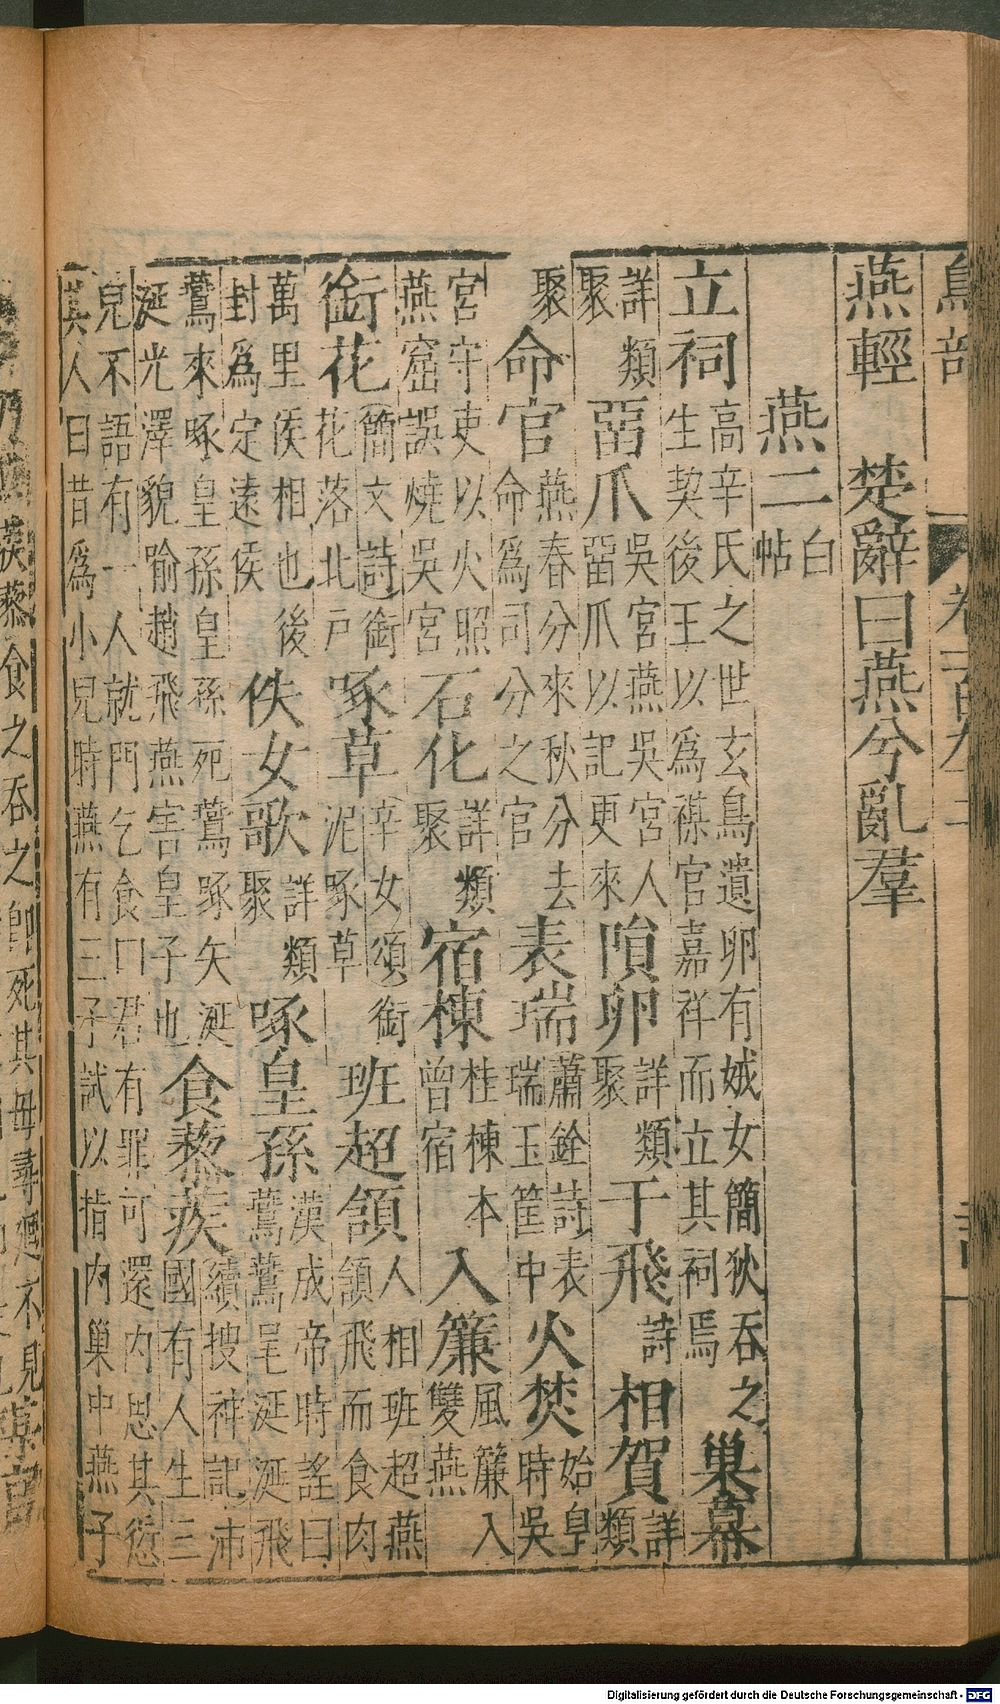 燕輕　楚辭曰燕兮亂羣
燕二白帖
立祠高辛氏之世玄鳥遺卵有娀女簡狄吞之
生契後王以為禖官嘉祥而立其祠焉巢幕
詳類聚㽞爪吳宮燕吳宮人
㽞爪以記更來隕卵詳類聚于飛詩相賀詳類
聚命官燕春分來秋分去
命為司分之官表瑞蕭銓詩表
瑞玉筐中火焚始皇時吳
宮守吏以火照
燕窟誤燒吳宮石化詳類聚宿棟桂棟本
曾宿入簾風簾入
雙燕
銜花簡文詩銜
花落北戶啄草辛女頌銜
泥啄草班超頷人相班超燕
頷飛而食肉
萬里侯相也後
封為定遠侯佚女歌詳類聚啄皇孫漢成帝時謠曰
鷰鷰呈涎涎飛
鷰來啄皇孫皇孫死鷰啄矢涎
涎光澤貌喻趙飛燕害皇子也食蒺藜續搜神記沛
國有人生三
兒不語有一人就門乞食曰君有罪可還內思其愆
其人曰昔為小兒時燕有三子試以指內巢中燕子